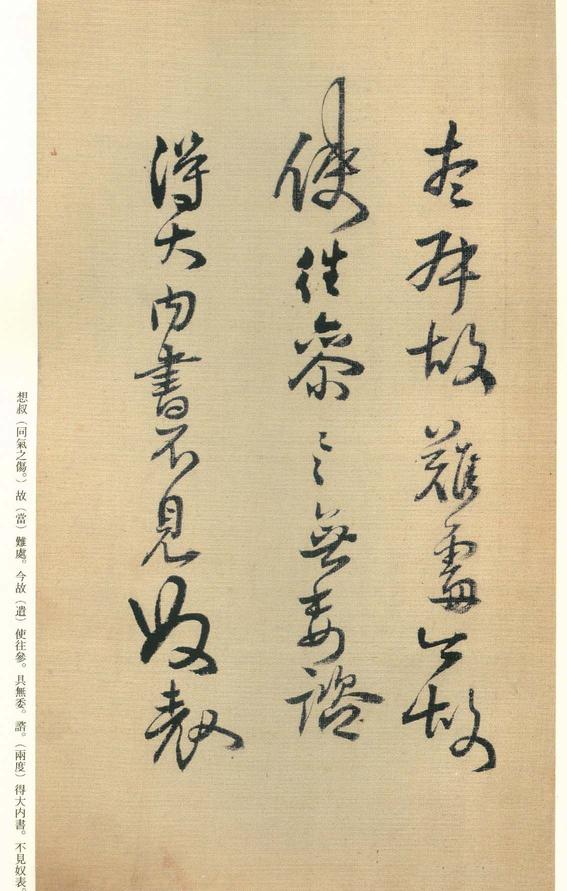 故難處今故
使往參〻無委諮
得大内書不見奴表
想叔（同氣之傷。）故（當）難處。今故（遺）使往參。具無委。諮。（兩度）得大内書。不見奴表。